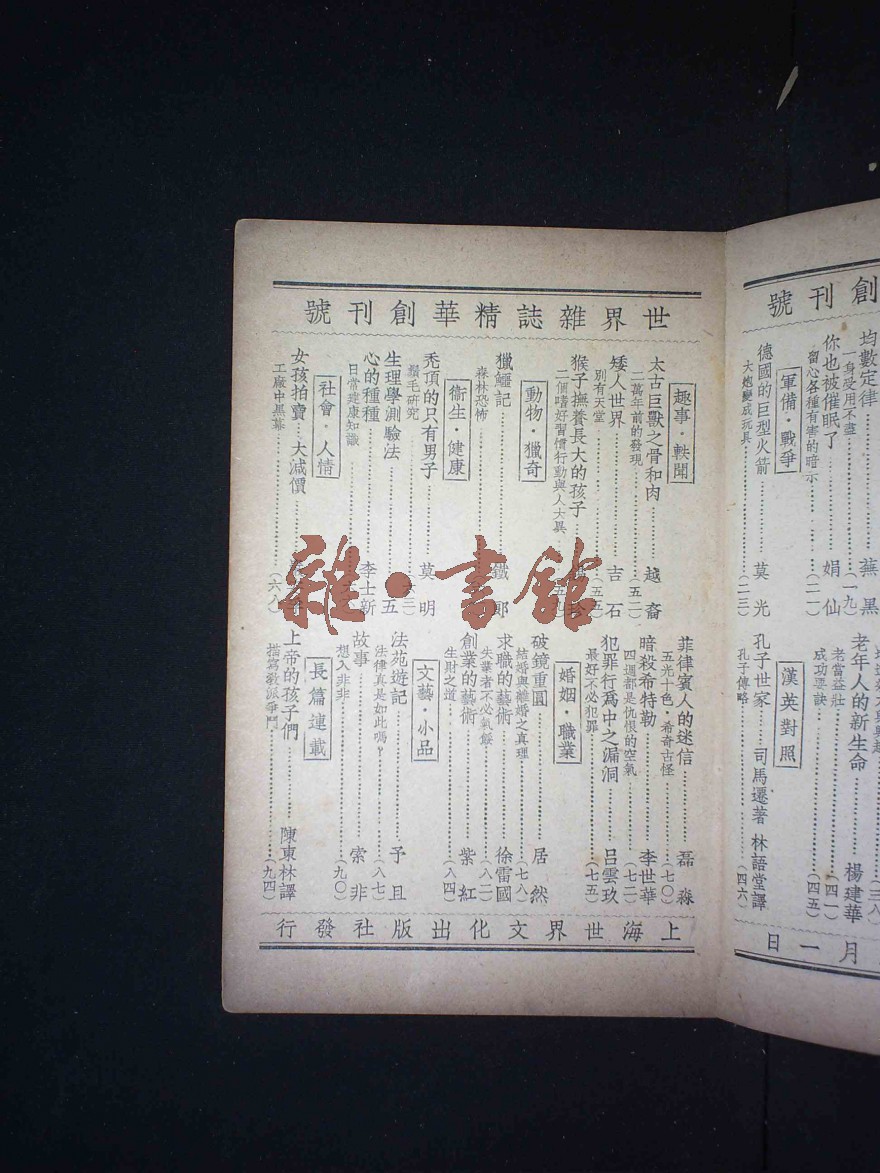 創刊號
均數定律 蕪黑
一身受用不盡 (一九)
你也被催眠了 娟仙
留心各種有害的暗示 (二一)
軍備·戰爭
德國的巨型火箭 莫光
大炮變成玩具 (二三)
(三八)
老年人的新生命 楊建華
老當益壯 (四一)
成功要訣 (四五)
漢英對照
孔子世家 司馬遷著 林語堂譯
孔子傳略 (四六)
月一日
世界雜誌精華創刊號
趣事·軼聞
太古巨獸之骨和肉 越裔
二萬年前的發現 (五二)
矮人世界 吉石
別有天堂 (五五)
猴子撫養長大的孩子
二個嗜好習慣行動與人大異
動物·獵奇
獵鱷記 鐵郎
森林恐怖
衞生·健康
禿頂的只有男子 莫明
鬚毛研究 (六三)
生理學測驗法 五
心的種種 李士新
日常健康知識
社會·人情
女孩拍賣 大減價
工廠中黑幕 (六八)
菲律賓人的迷信 磊淼
五光十色·希奇古怪 (七〇)
暗殺希特勒 李世華
四週都是仇恨的空氣 (七二)
犯罪行爲中之漏洞 呂雲玖
最好不必犯罪 (七五)
婚姻·職業
破鏡重圓 居然
結婚與離婚之真理 (七八)
求職的藝術 徐雷國
失業者不必氣餒 (八二)
創業的藝術 紫紅
生財之道 (八四)
文藝·小品
法苑遊記 予且
法律真是如此嗎? (八七)
故事 索非
想入非非 (九〇)
長篇連載
上帝的孩子們 陳東林譯
描寫教派爭鬥 (九四)
上海世界文化出版社發行
雜·書館